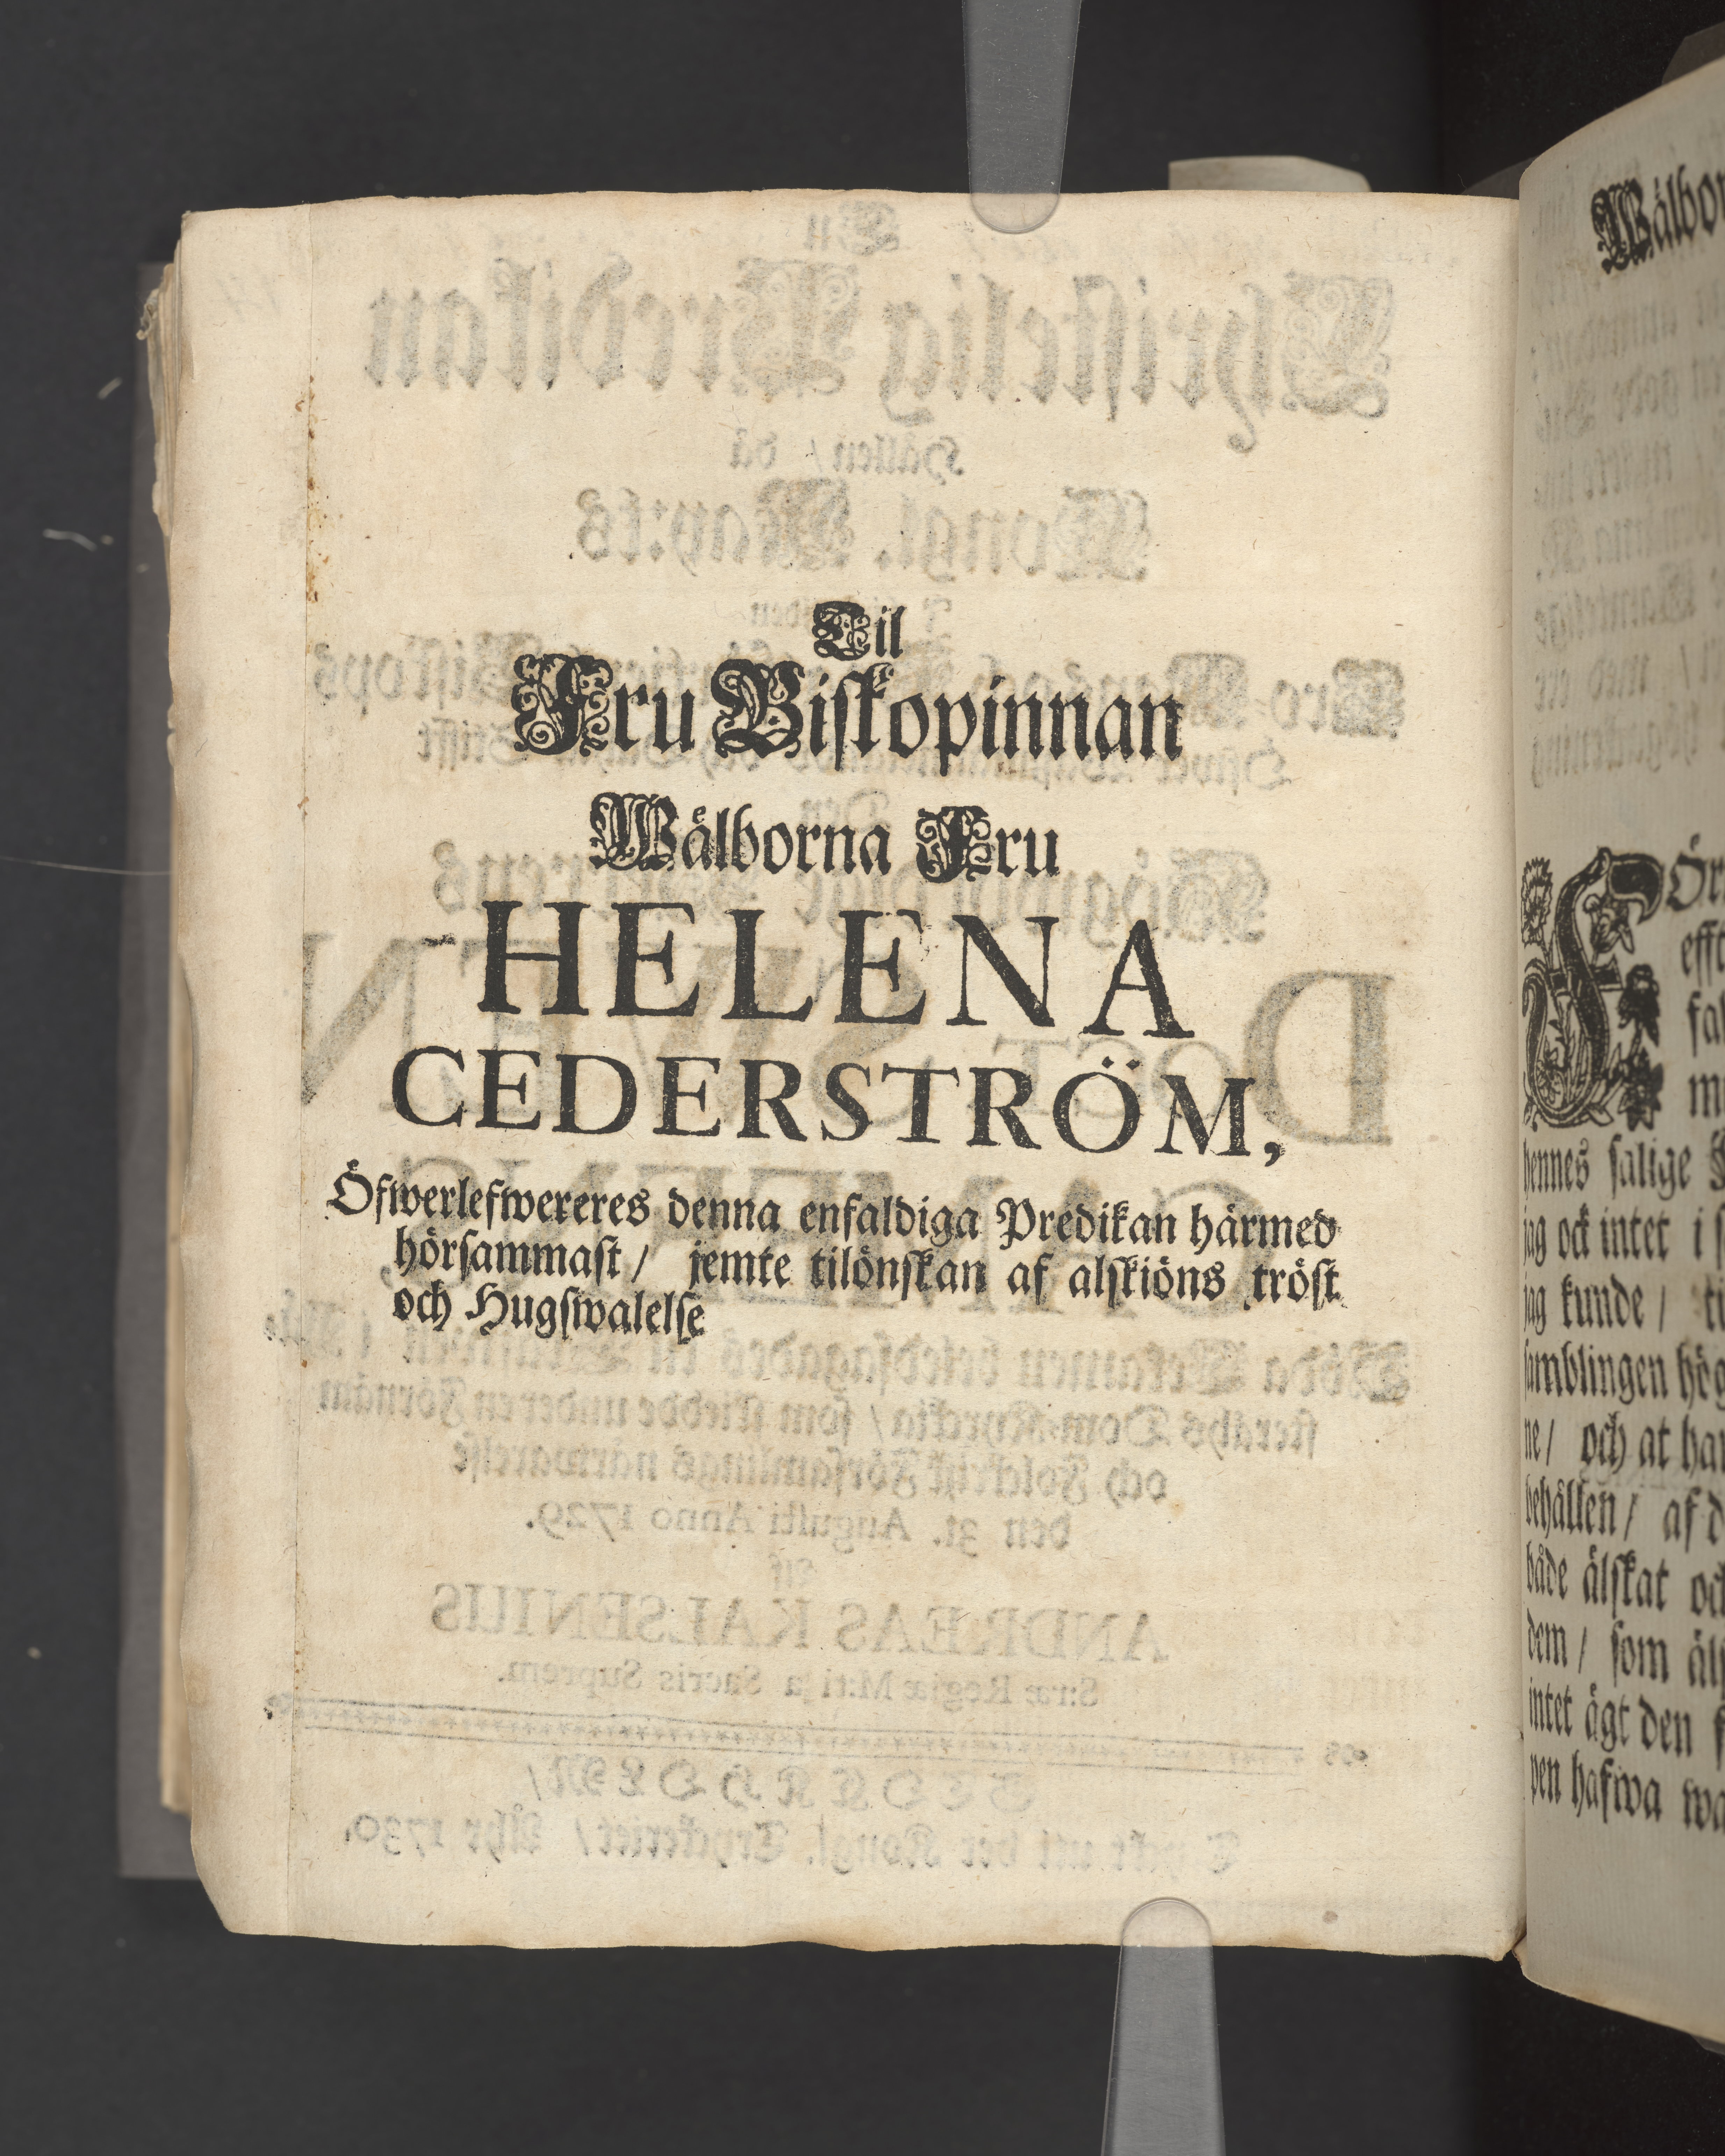 Til
Fru Biskopinnan
Wälborna Fru
HELENA
CEDERSTRÖM,
Öfwerlefwereres denna enfaldiga Predikan härmed
hörsammast / jemte tilönskan af alskiöns tröst
och Hugswalelse
Wälbor
Ör
hennes salige
jag ock intet i
jag kunde /
samblingen hög
ne / och at har
behållen / af d
både älskat oc
dem / som äls
intet ägt den
pen hafwa wa